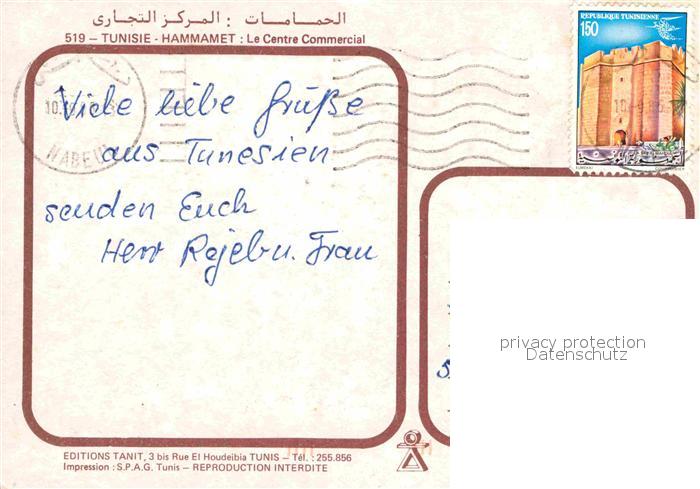 الحمامات : المركز التجارى
519 – TUNISIE - HAMMAMET : Le Centre Commercial
REPUBLIQUE TUNISIENNE
150
10.
NABEUL
Viele liebe Grüße
aus Tunesien
senden Euch
Herr Rajeb u. Frau
privacy protection
Datenschutz
EDITIONS TANIT, 3 bis Rue El Houdeibia TUNIS – Tél. : 255.856
Impression : S.P.A.G. Tunis – REPRODUCTION INTERDITE